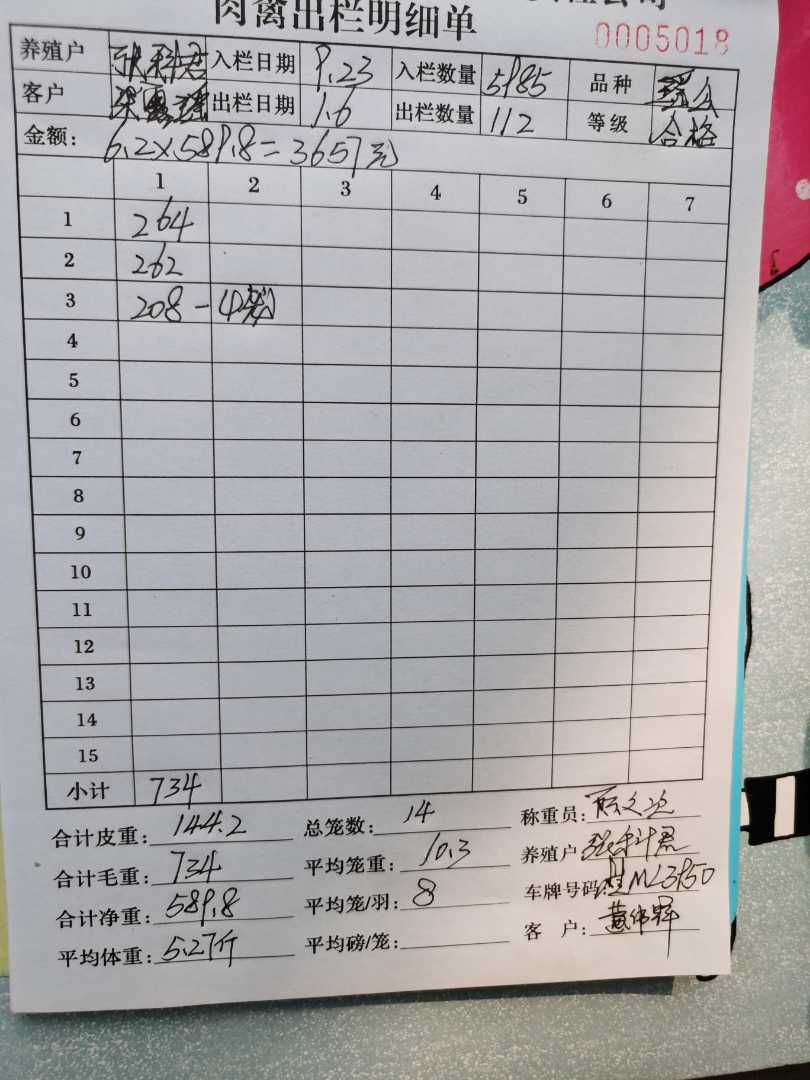 肉禽出栏明细单
0005018
养殖户 入栏日期 9.23 入栏数量 5985 品种
客户 出栏日期 1.6 出栏数量 112 等级 合格
金额: 6.2×589.8=3657元
1 2 3 4 5 6 7
1 264
2 262
3 208-4
4
5
6
7
8
9
10
11
12
13
14
15
小计 734
合计皮重: 144.2 总笼数: 14 称重员:
合计毛重: 734 平均笼重: 10.3 养殖户
合计净重: 589.8 平均笼/羽: 8 车牌号码
平均体重: 5.27斤 平均磅/笼: 客 户: